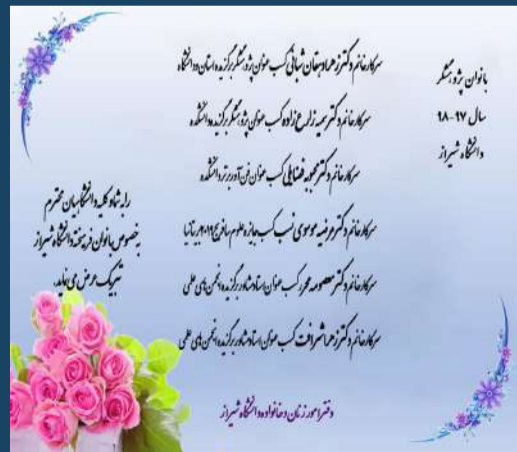 بانوان پژوهشگر
سال ۹۷-۹۸
دانشگاه شیراز
سرکار خانم دکتر زهرا دهقان شبانی کسب عنوان پژوهشگر برگزیده استان و دانشگاه
سرکار خانم دکتر سمیه زارع زاده کسب عنوان پژوهشگر برگزیده دانشکده
سرکار خانم دکتر محبوبه فضایلی کسب عنوان فن آور برتر دانشکده
سرکار خانم دکتر مرضیه موسوی نسب کسب جایزه علوم ۲۰۱۹ بریتانیا
سرکار خانم دکتر معصومه محرر کسب عنوان استاد مشاور برگزیده انجمن های علمی
سرکار خانم دکتر زهرا شرافت کسب عنوان استاد مشاور برگزیده انجمن های علمی
را به شما و کلیه دانشگاهیان محترم
بخصوص بانوان فرهیخته دانشگاه شیراز
تبریک عرض می نماید.
دفتر امور زنان و خانواده دانشگاه شیراز